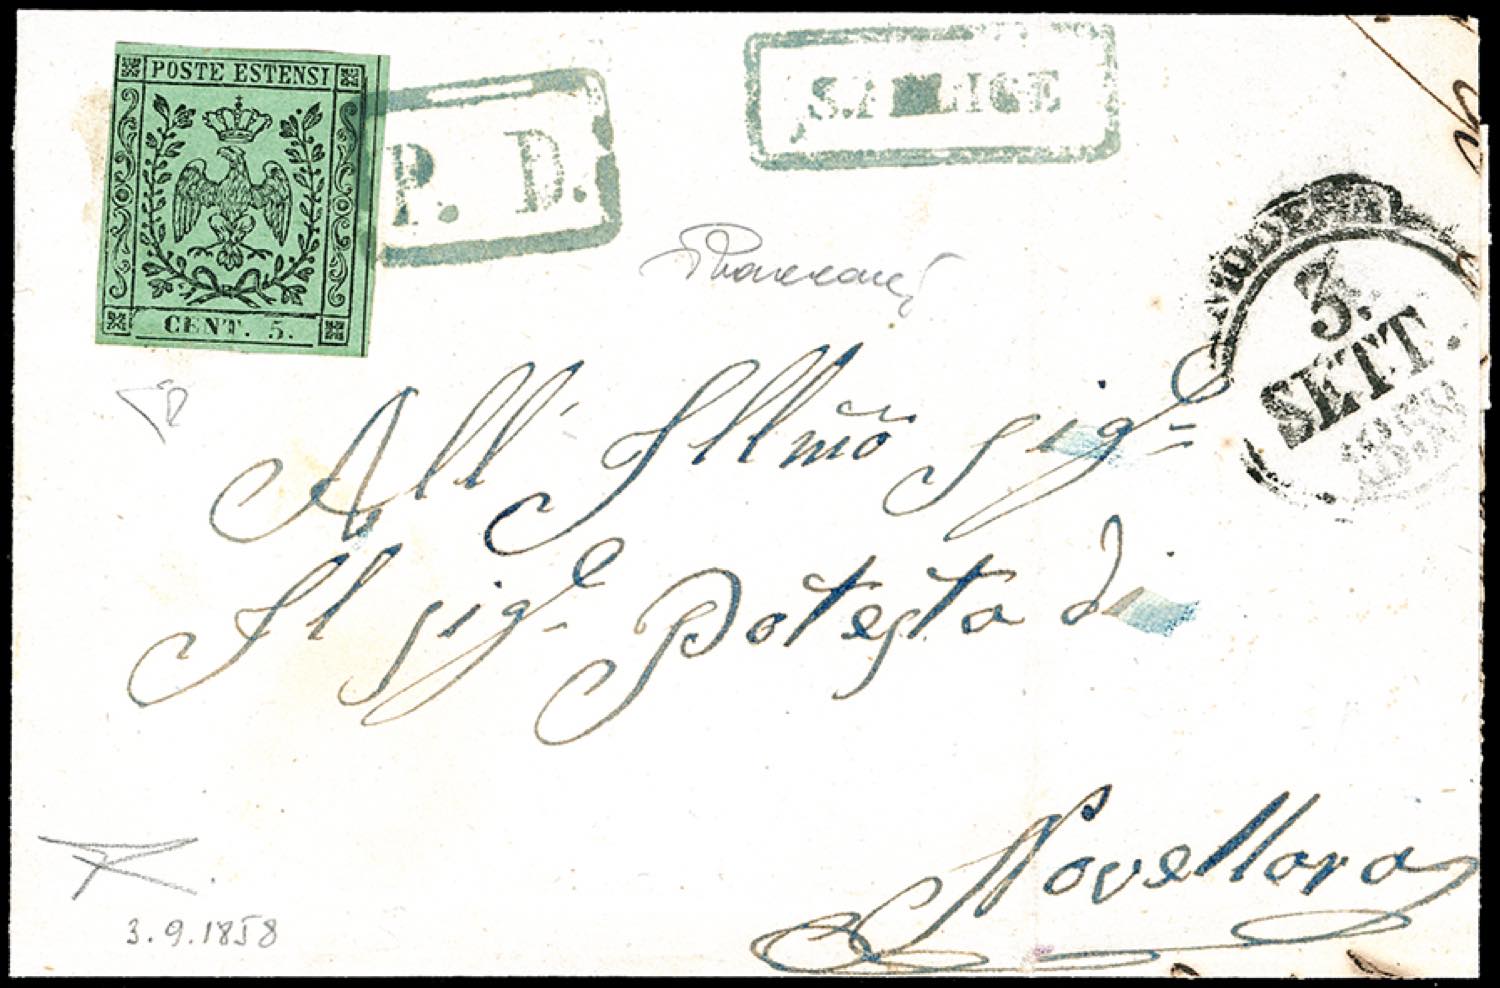 POSTE ESTENSI
CENT. 5.
P. D.
S. FELICE
MODENA
3.
SETT.
All' Illmõ sigᵉ
Il sigᵉ Potesta di
Novellara
3.9.1858